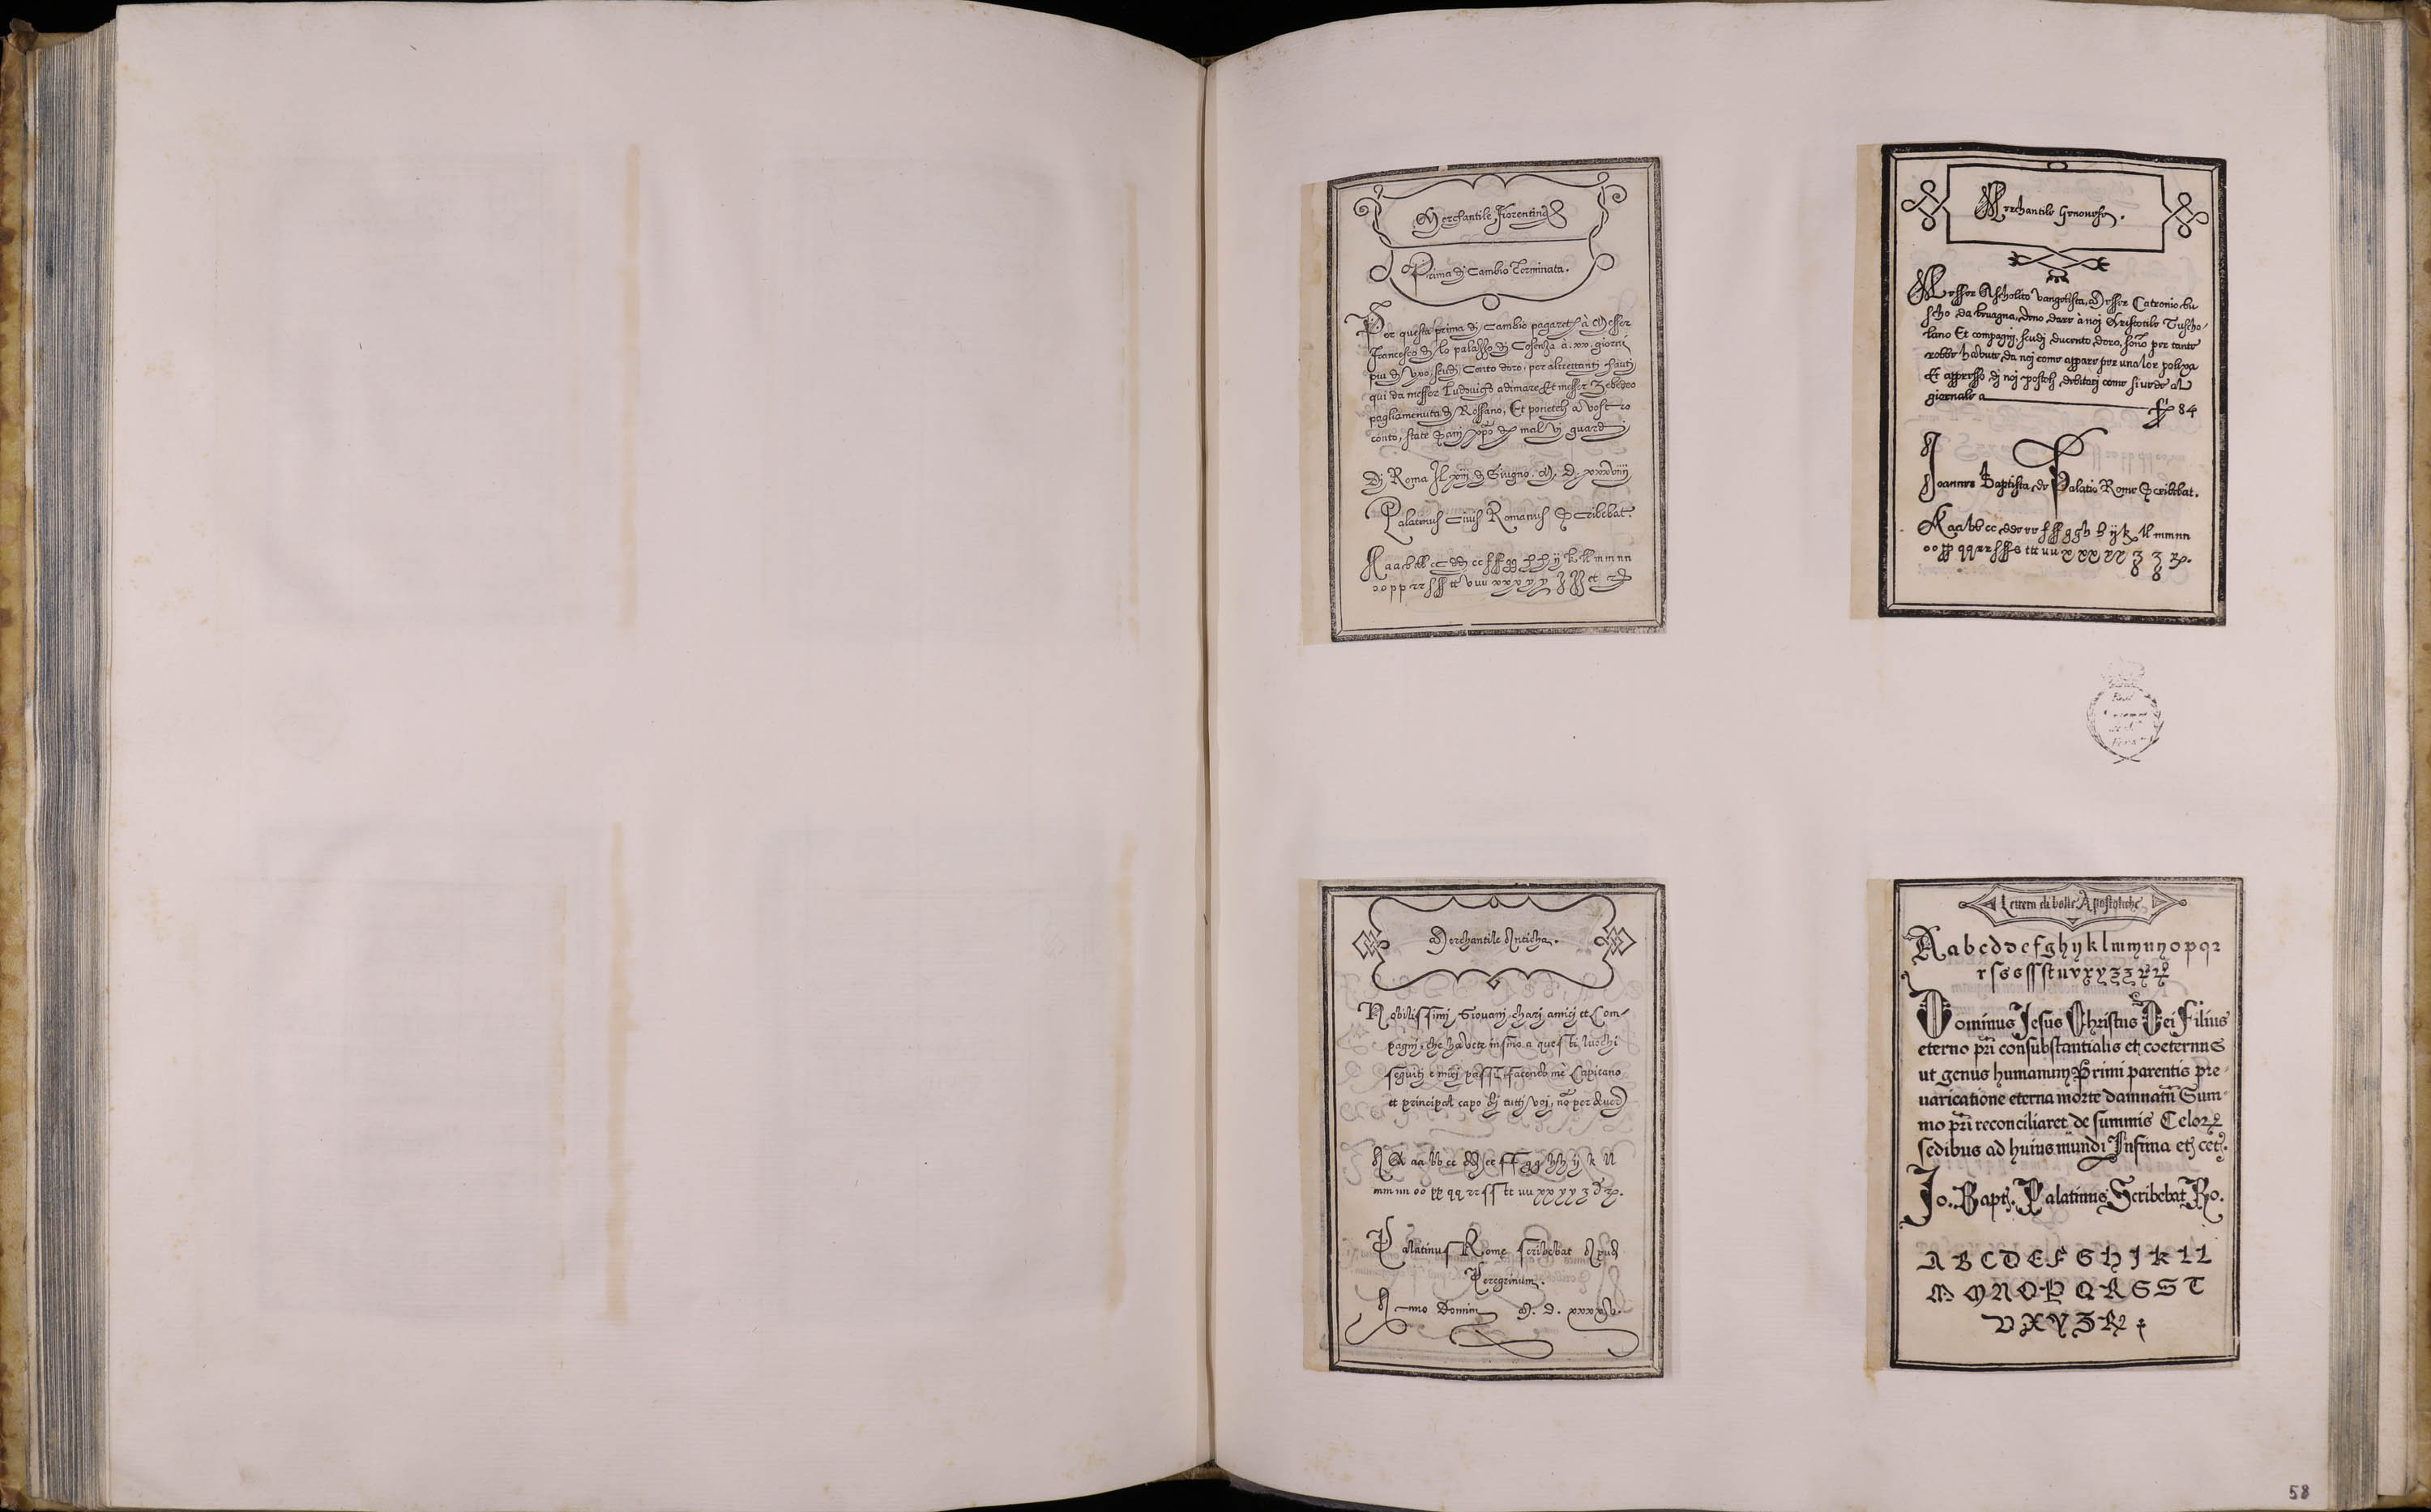 Merchantile Fiorentina
Prima di Cambio Terminata.
Per questa prima di Cambio pagarete à Messer
Francesco di lo palazzo di Cosenza à .xx. giorni
piu di vso, scudi Cento doro, per altrettanti hauti
qui da messer Ludovico adimare, Et messer Zebedeo
pagliamenuta di Rossano, Et ponetelj a vostro
conto, state Sanj, xp̄o di mal vi guardi
Dj Roma Il xiij di Giugno. M. D. xxxviiij
Palatinus Ciuis Romanus Scribebat.
A a a b bb cc dd ee ff gg hh ij k ll mm nn
oo pp rr ss tt v uu xx x y y z zz et
Merchantile Genouese.
Messer Ascholito Vangelista, Messer Catronio bu
scho da beuagna, deno dare à noj Aristotile Tuscho/
lano Et compagnj, scudj ducento doro, sono per tante
robbe habute da noj come appare per una lor polixa
Et appresso dj noj postolj debitorj come si uede al
giornale a 84
Joannes Baptista de Palatio Rome Scribebat.
A aa bb cc dd ee ff gg h h ij k ll mm nn
oo pp qq rr ss s ttt uu x xx yy z z
Merchantile Anticha.
Nobilissimj Giouanj charj amicj et Com/
pagnj, che havete insino a questi luochi
seguitj e miej passi facendo me Capitano
et principal capo dj tuttj voj, nō per douer
A A aa bb cc dd ee ff gg hh ij k ll
mm nn oo pp qq rr ss tt uu xx yy z
Palatinus Rome scribebat Apud
Peregrinum.
Anno Domini M. D. xxxxv.
Lettera di bolle Apostoliche
A a b c d d e f g h y k l m m n n o p q r
r s s s ss st u v x y z z
Dominus Jesus Christus Dei Filius
eterno pr̄i consubstantialis et coeternus
ut genus humanum Primi parentis pre/
uaricatione eterna morte damnatū Sum/
mo pr̄i reconciliaret de summis Celorꝝ
sedibus ad huius mundi Infima et cet.
Jo. Bapt. Palatinus Scribebat Ro.
A B C D E F G H J K L L
M M N O P Q R S S T
V X Y Z
58